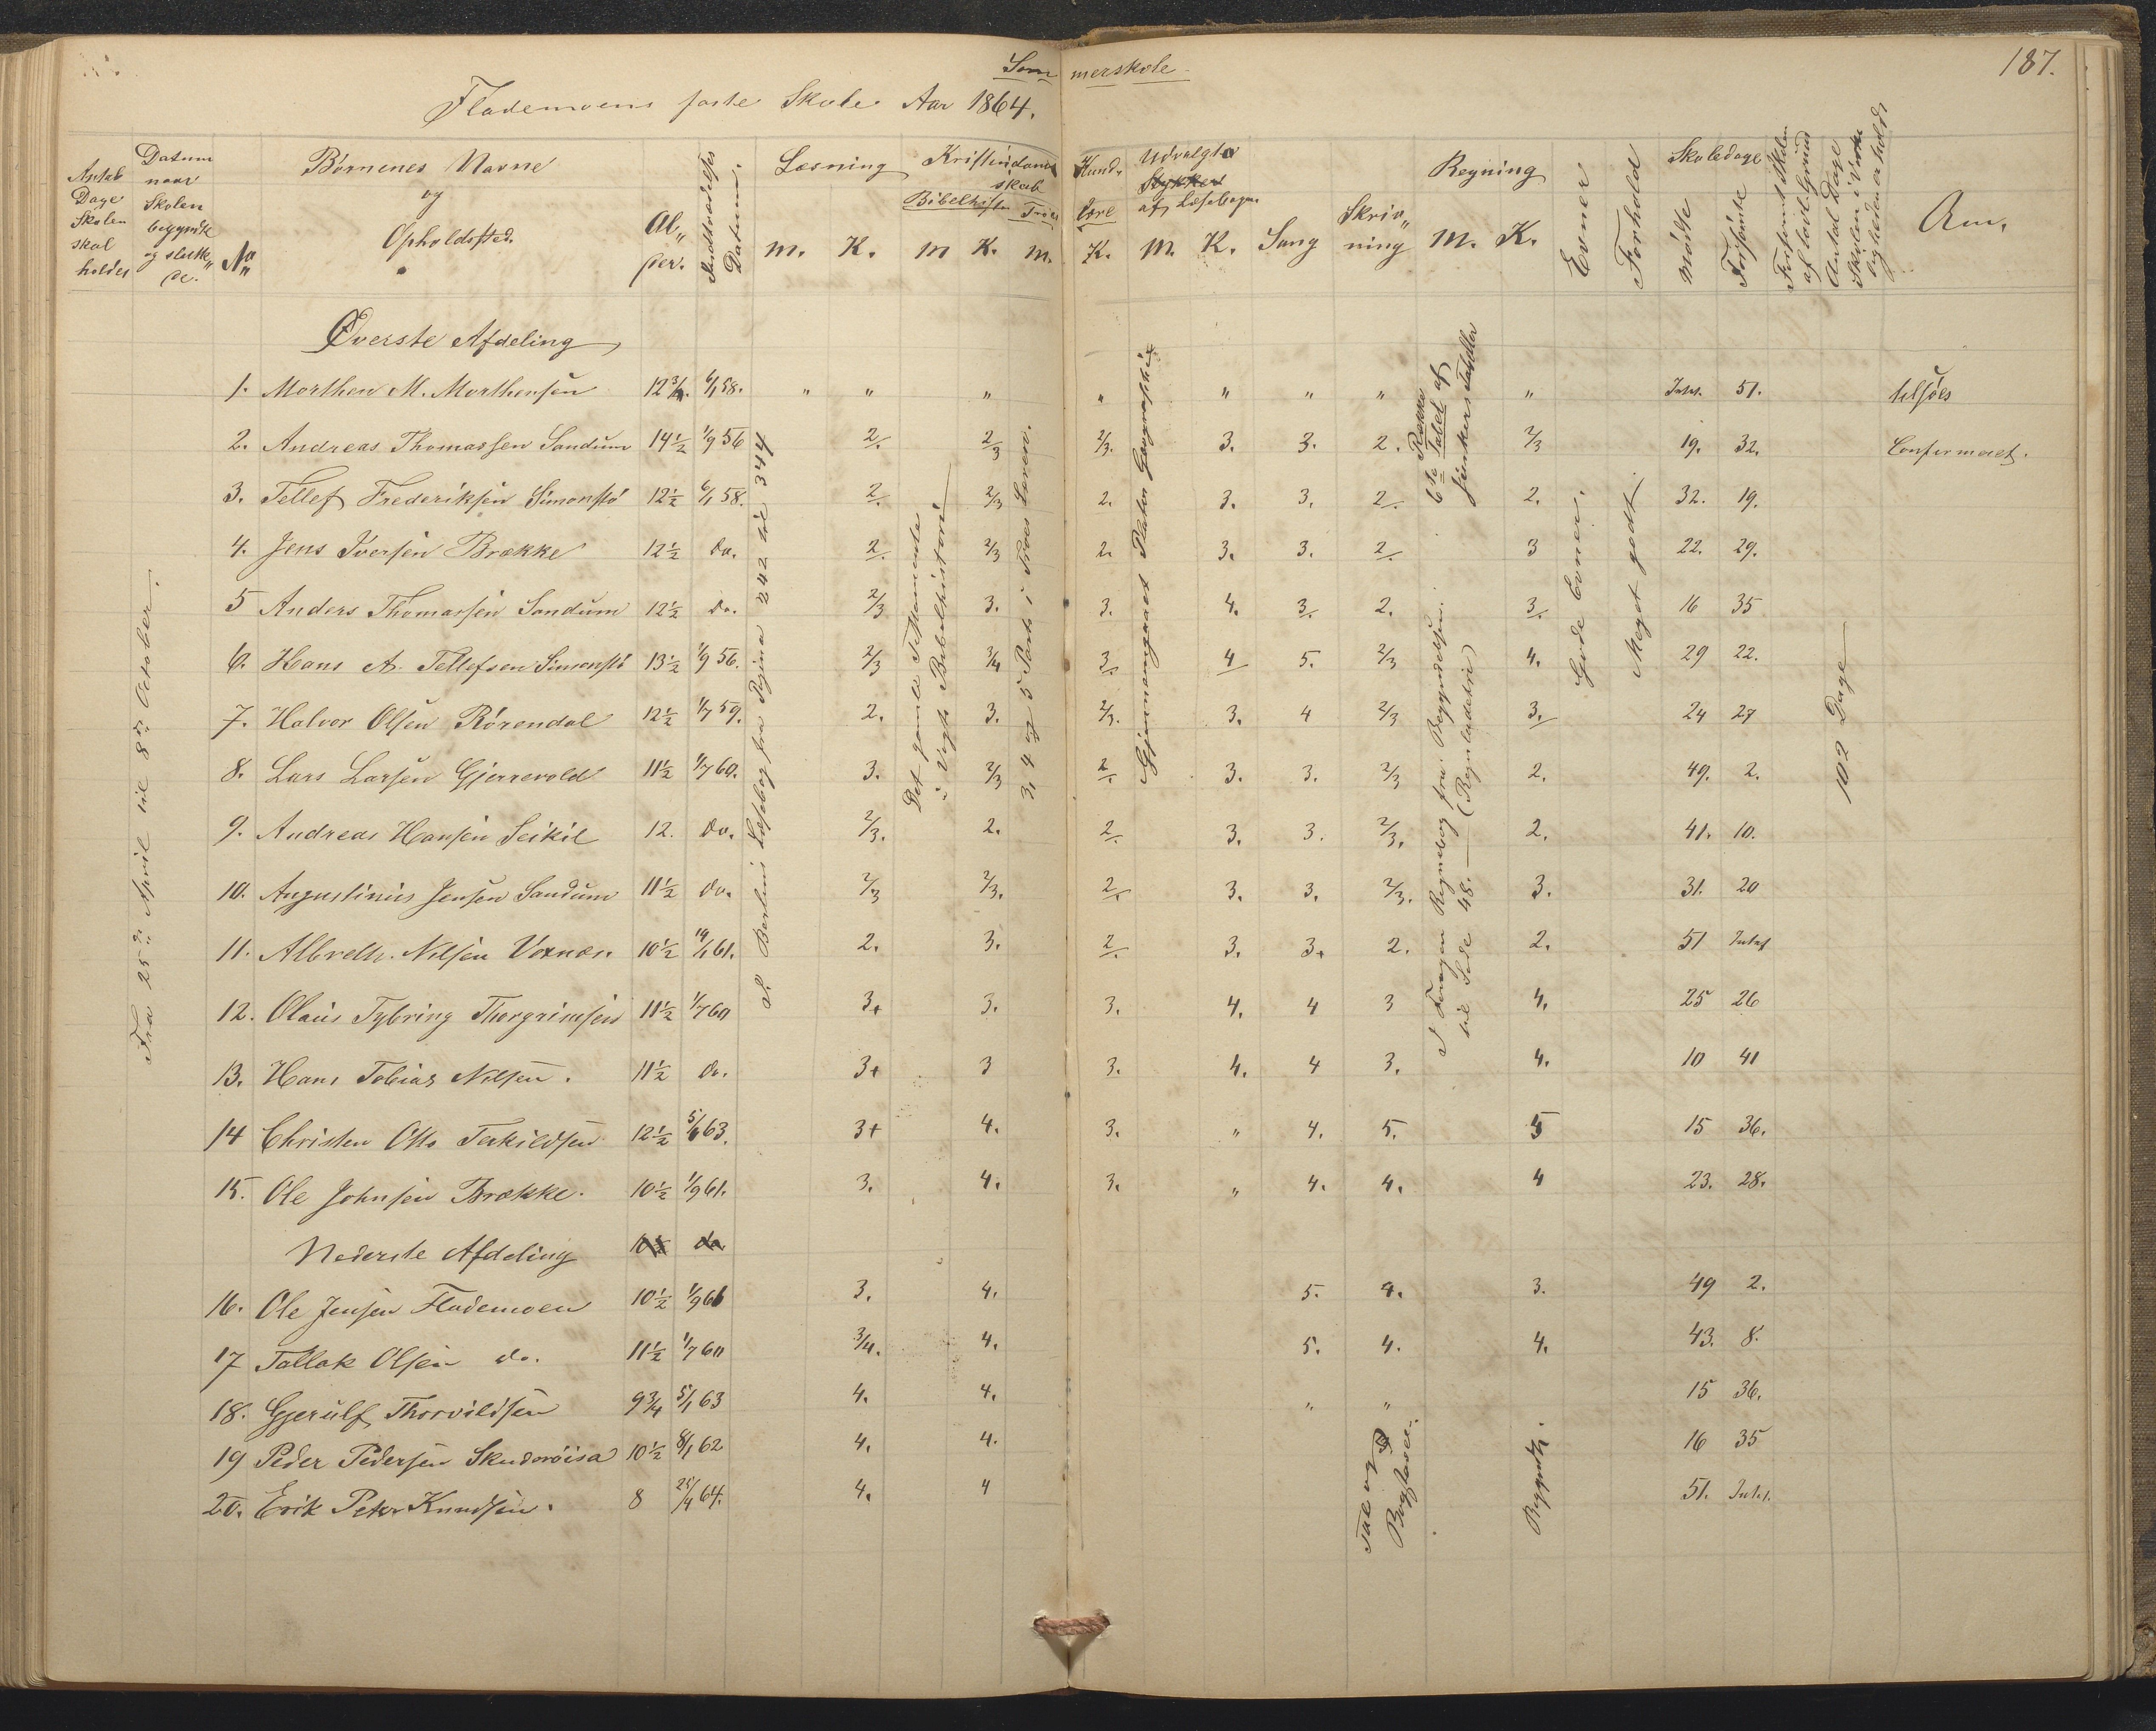 187.
Sommerskole
Flademoens faste Skole Aar 1864.
Antal Dage Skolen skal holdes
Datum naar Skolen begyndte og sluttede.
No
Børnenes Navne og Opholdsted.
Alper.
Datum.
Læsning M. K.
Kristendomskundskab
Bibelhist. M K.
Troes Lære M. K.
Udvalgte Stykker af Læsebogen M. K.
Sang
Skrivning
Regning M. K.
Evner
Forhold
Skoledage
Mødte
Forsømte
Anm.
Fra 25de April til 8de October.
Øverste Afdeling
1. Morthen M. Morthensen 12 3/4. 6/1 58. " " " " " " " " 51. tilsjøes
2. Andreas Thomassen Sandum 14 1/2 1/9 56 2. 2/3 2/3. 3. 3. 2. 2/3 19. 32. Confirmeret.
3. Tellef Frederiksen Simonstø 12 1/2 6/1 58. 2. 2/3 2. 3. 3. 2. 2. 32. 19.
4. Jens Iversen Brække 12 1/2 do. 2. 2/3 2. 3. 3. 2. 3 22. 29.
5 Anders Thomassen Sandum 12 1/2 do. 2/3 3. 3. 4. 3. 2. 3. 16 35
6. Hans A. Tellefsen Simonstø 13 1/2 1/9 56. 2/3 3/4 3. 4 5. 2/3 4. 29 22.
7. Halvor Olsen Rørendal 12 1/2 1/7 59. 2. 3. 2/3. 3. 4 2/3 3. 24 27
8. Lars Larsen Gjerrevold 11 1/2 1/7 60. 3. 2/3 2. 3. 3. 2/3 2. 49. 2.
9. Andreas Hansen Seikil 12. do. 2/3. 2. 2. 3. 3. 2/3. 2. 41. 10.
10. Augustinius Jensen Sandum 11 1/2 do. 2/3 2/3. 2. 3. 3. 2/3. 3. 31. 20
11. Albreth. Nilsen Voxnes. 10 1/2 14/1 61. 2. 3. 2. 3. 3+ 2. 2. 51 Intet
12. Olaus Tybring Thorgrimsen 11 1/2 1/7 60 3+ 3. 3. 4. 4 3 4. 25 26
13. Hans Tobias Nilsen. 11 1/2 do. 3+ 3 3. 4. 4 3. 4. 10 41
14 Christen Otto Terkildsen 12 1/2 63. 3+ 4. 3. " 4. 5. 5 15 36.
15. Ole Johnsen Brække. 10 1/2 1/9 61. 3. 4. 3. " 4. 4. 4 23. 28.
Nederste Afdeling do
16. Ole Jensen Flademoen 10 1/2 1/9 61 3. 4. 5. 4. 3. 49 2.
17 Tallak Olsen do. 11 1/2 1/7 60 3/4. 4. 5. 4. 4. 43. 8.
18. Gjerulf Thorvildsen 9 3/4 5/1 63 4. 4. " " 15 36.
19 Peder Pedersen Skuderøisa 10 1/2 8/1 62 4. 4. 16 35
20. Erik Peter Knudsen. 8 25/4 64. 4. 4 51. Intet.
Læsebog fra Pagina 242 til 344
Det gamle Testamente
i Vogts Bibelhistorie
3, 4 og 5 Part i Troes Læren.
Gjennemgaaet Platou Geographie
6te Række
Regnebog fra Begyndelsen
til Side 48.
Gode Evner.
Meget godt.
102 Dage
Tal og Bogstaver.